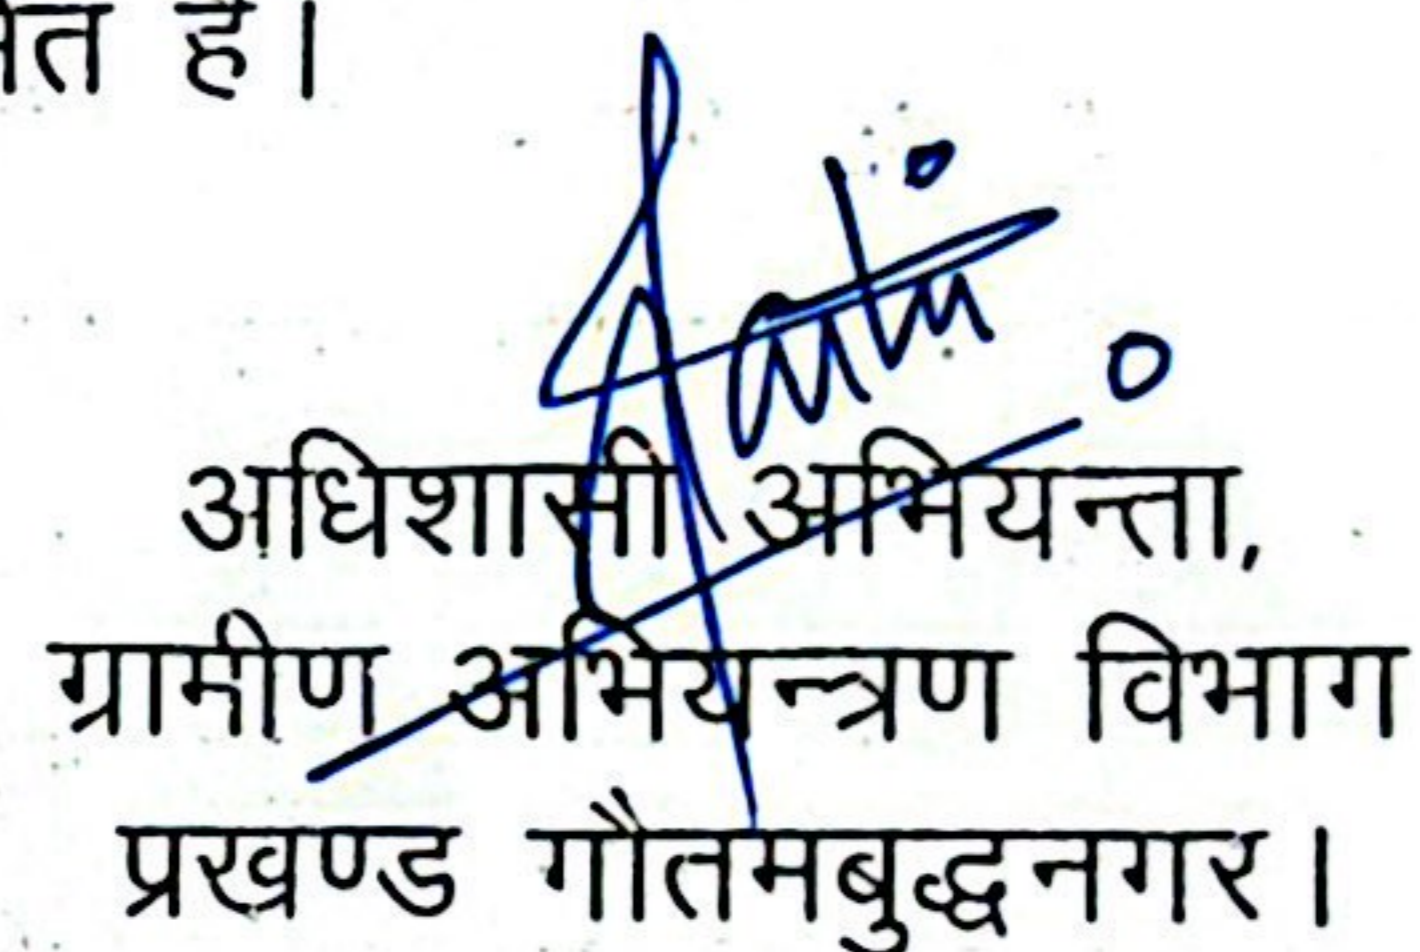 है।
अधिशासी अभियन्ता,
ग्रामीण अभियन्त्रण विभाग
प्रखण्ड गौतमबुद्धनगर।